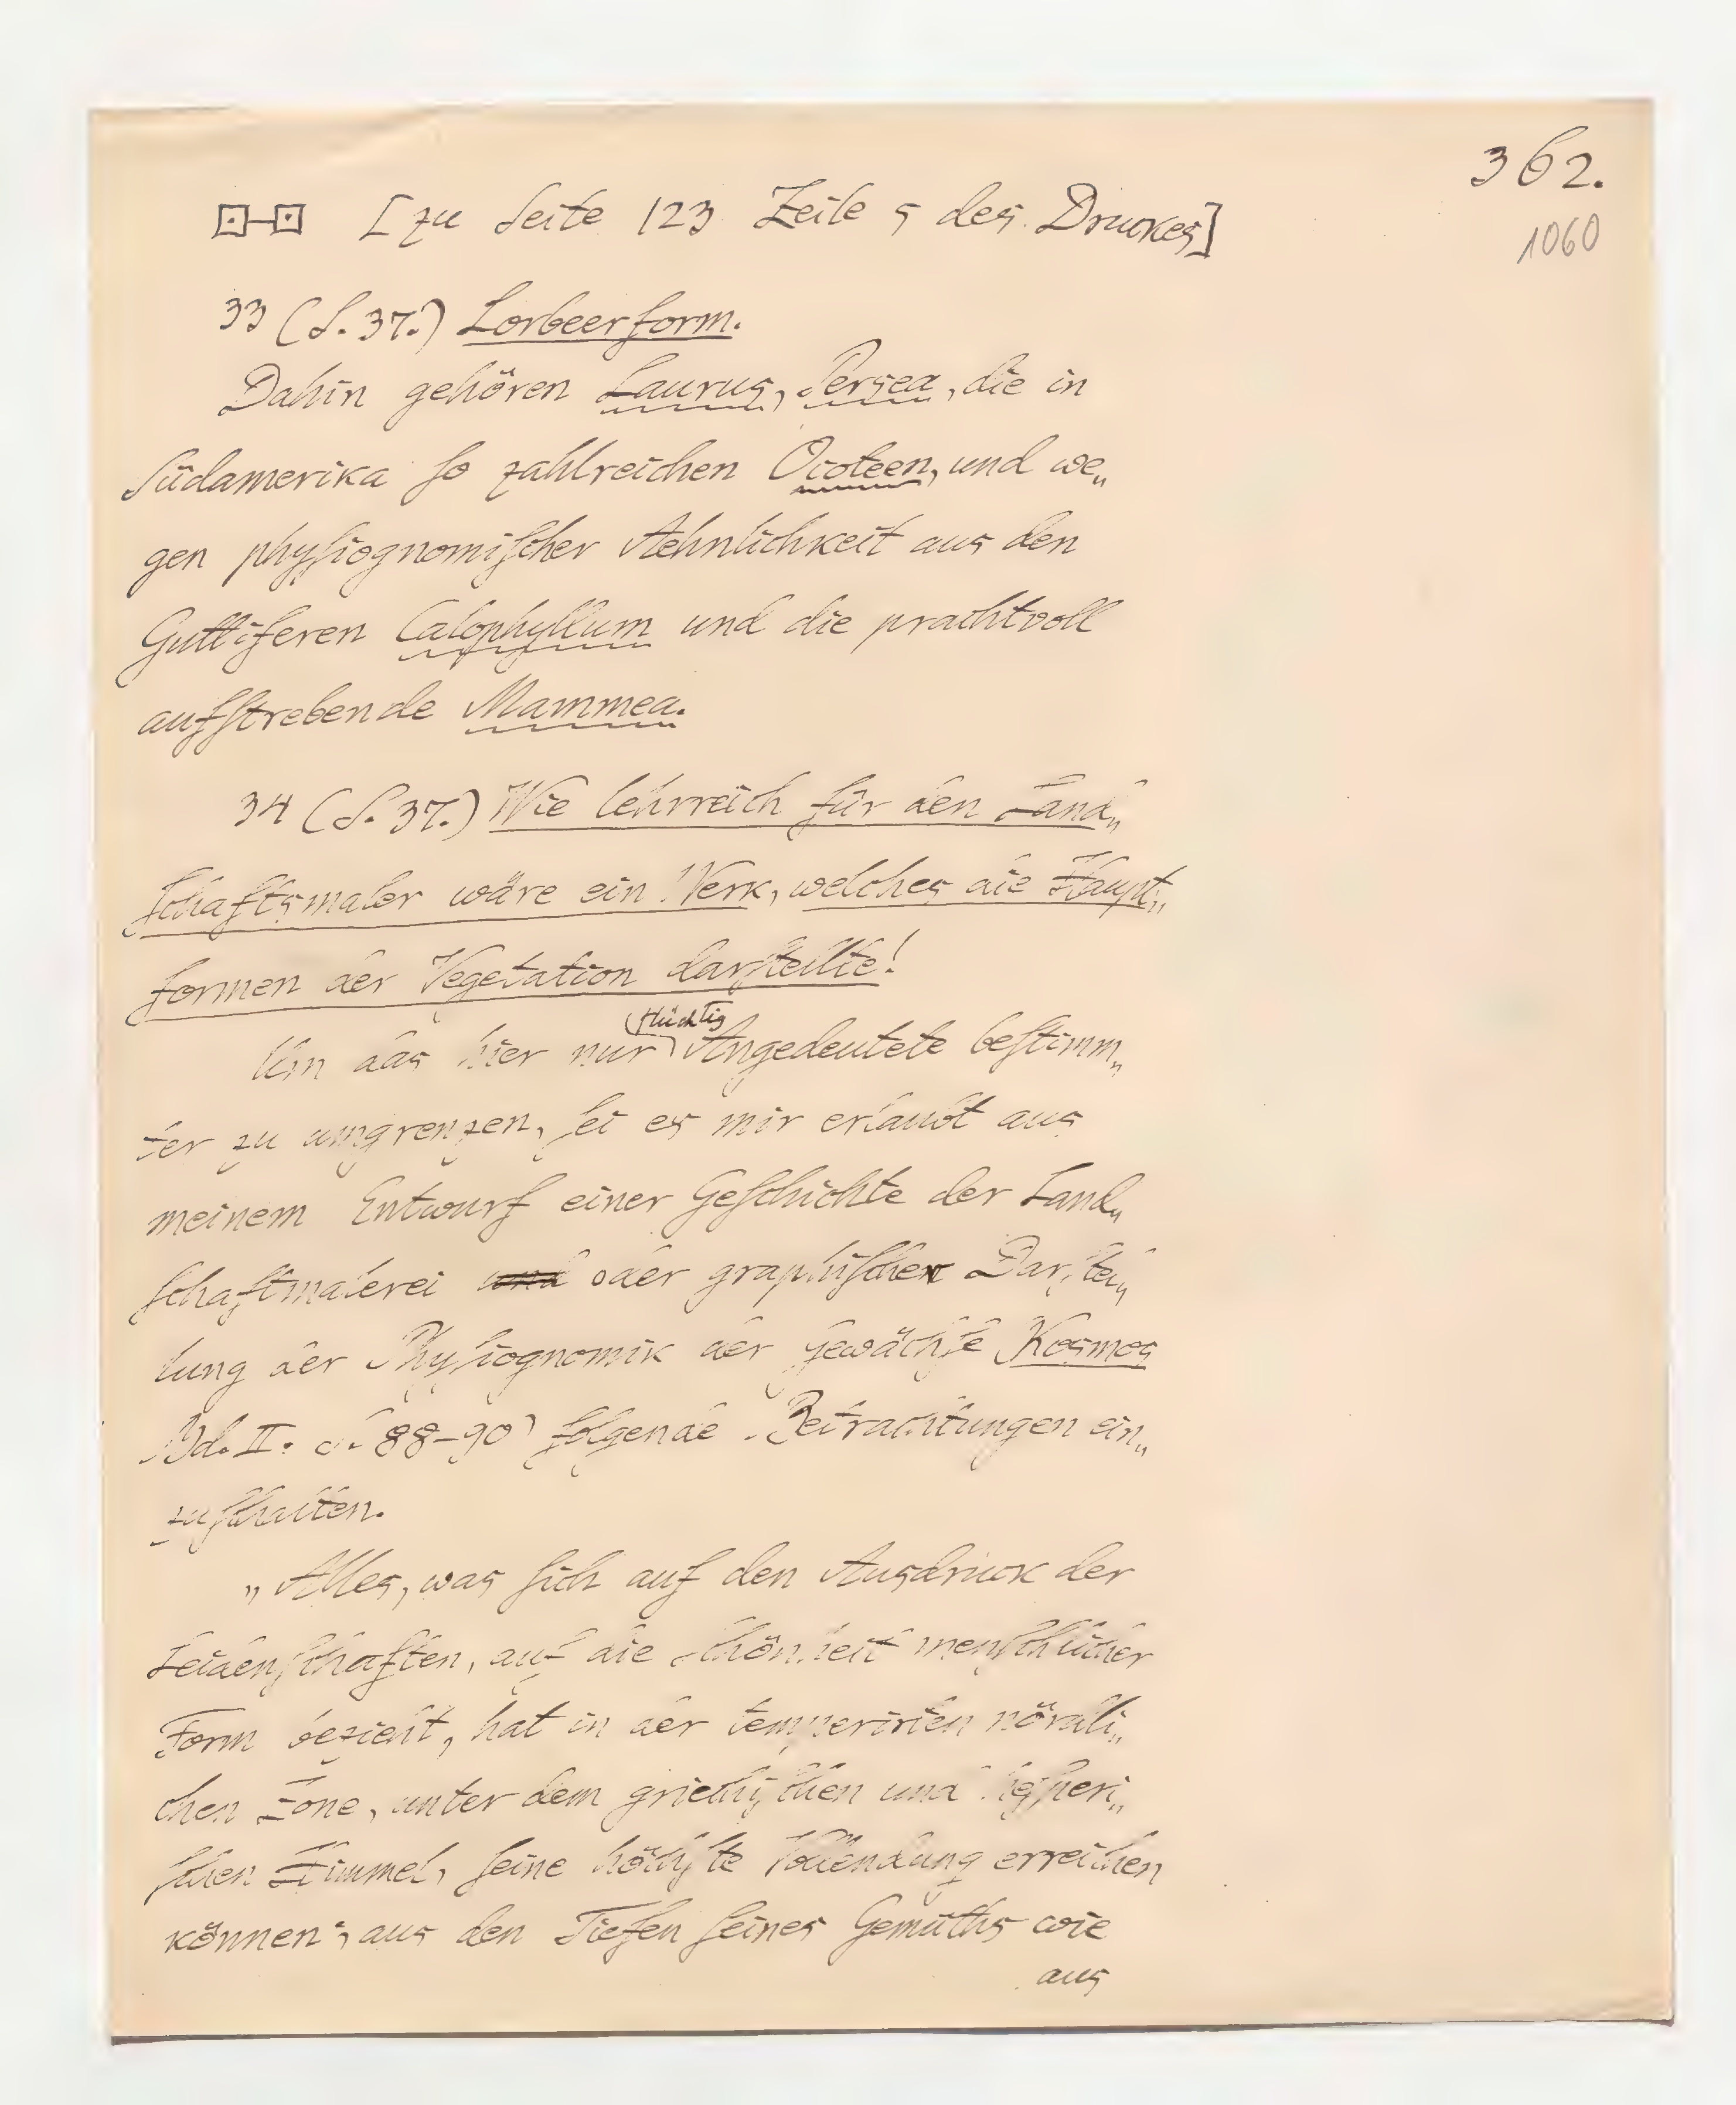 362.
1060
[zu Seite 123 Zeile 5 des Druckes]
33 (S. 37.) Lorbeerform.
Dahin gehören Laurus, Persea, die in
Südamerika so zahlreichen Ocoteen, und we„
gen physiognomischer Aehnlichkeit aus den
Guttiferen Calophyllum und die prachtvoll
aufstrebende Mammea.
34 (S. 37.) Wie lehrreich für den Land„
schaftsmaler wäre ein Werk, welches die Haupt„
formen der Vegetation darstellte!
flüchtig
Um das hier nur Angedeutete bestimm„
ter zu umgrenzen, sei es mir erlaubt aus
meinem Entwurf einer Geschichte der Land„
schaftmalerei und oder graphischen Darstel„
lung der Physiognomik der Gewächse Kosmos
Bd. II. S. 88–90) folgende Betrachtungen ein„
zuschalten.
„Alles, was sich auf den Ausdruck der
Leidenschaften, auf die Schönheit menschlicher
Form bezieht, hat in der temperirten nördli„
chen Zone, unter dem griechischen und hesperi„
schen Himmel, seine höchste Vollendung erreichen
können; aus den Tiefen seines Gemüths wie
aus